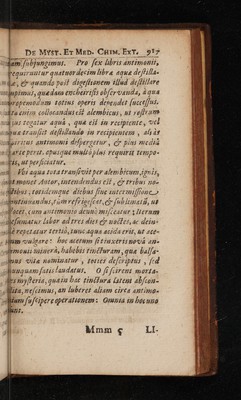 DE MYST. ET MED. CHIM. EXT. 917
subjungimus. Pro sex libris antimonii,
requiruntur quatuordecim libræ aquæ destilla-
tæ, & quando post digestionem illud destillare
quadam encheirisi observanda, à qua
totius operis dependet successus.
enim collocandus est alembicus, ut rostrum
tegatur aquâ, quæ est in recipiente, vel
transit destillando in recipientem, aliàs
spiritus antimonii dispergitur, & plus mediâ
parte perit. opusque multò plus requirit tempo-
ris, ut perficiatur.
Vbi aqua tota transiverit per alembicum, ignis,
ut monet Autor, intendendus est, & tribus no-
ctibus, totidemque diebus sine intermissione
continuandus, tùm refrigescet, & sublimatũ, ut
docet, cum antimonio denuò misceatur: iterum
labor ad tres dies & noctes, ac deinde
repetatur tertiò, tunc aqua acida erit, ut ace-
tum hoc acetum si tinxeris novâ an-
timonii minerâ, habebis tincturam, quæ balsa-
mus vitæ nominatur, toties descriptus, sed
nunquam satis laudatus. O si scirent morta-
les mysteria, quæ in hac tinctura latent abscon-
dita, nescimus, an luberet aliam circa antimo-
nium suscipere operationem: Omnia in hoc uno
sunt.
Mmm 5 LI.